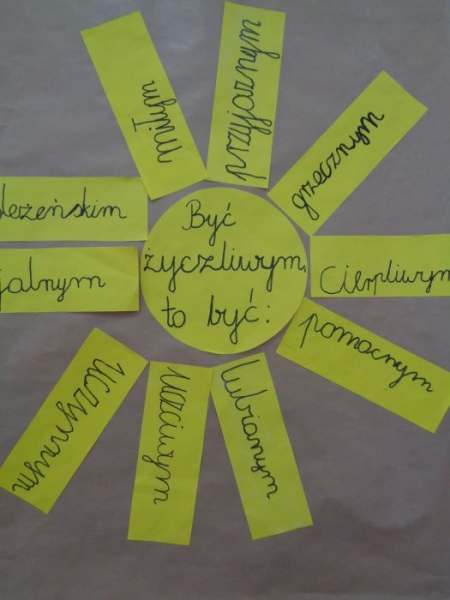 Być
życzliwym,
to być:
miłym
przyjaznym
grzecznym
Cierpliwym
pomocnym
lubianym
uczciwym
uczynnym
jalnym
leżeńskim